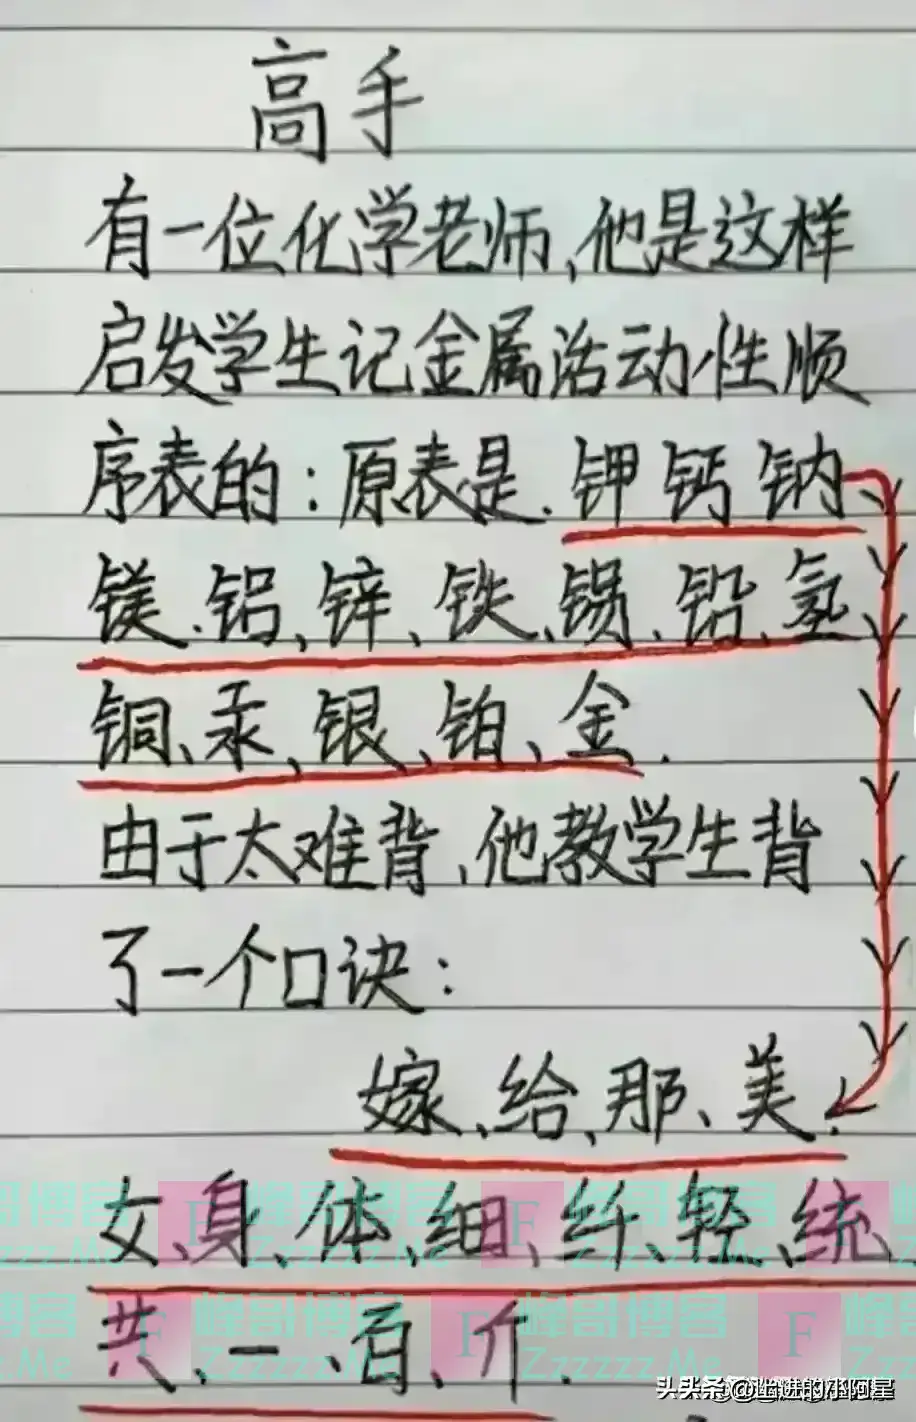 高手
有一位化学老师,他是这样
启发学生记金属活动性顺
序表的:原表是.钾钙钠
镁.铝、锌、铁、锡.铅、氢
铜、汞、银、铂、金.
由于太难背,他教学生背
了一个口诀:
嫁、给、那、美.
女、身、体、细、纤、轻、统
共、一、百、斤.
峰哥博客
Zzzzzz.Me
头头条@